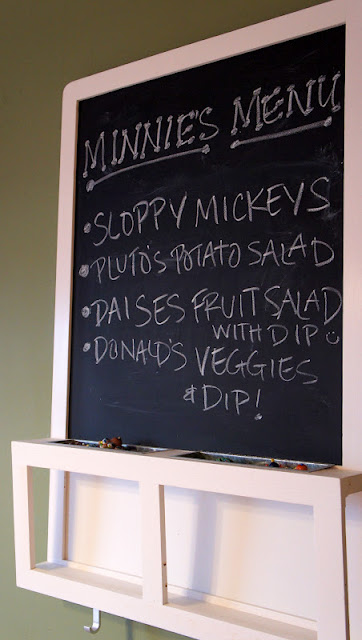 MINNIE'S MENU
• SLOPPY MICKEYS
• PLUTO'S POTATO SALAD
• DAISES FRUIT SALAD
WITH DIP
• DONALD'S VEGGIES
& DIP!